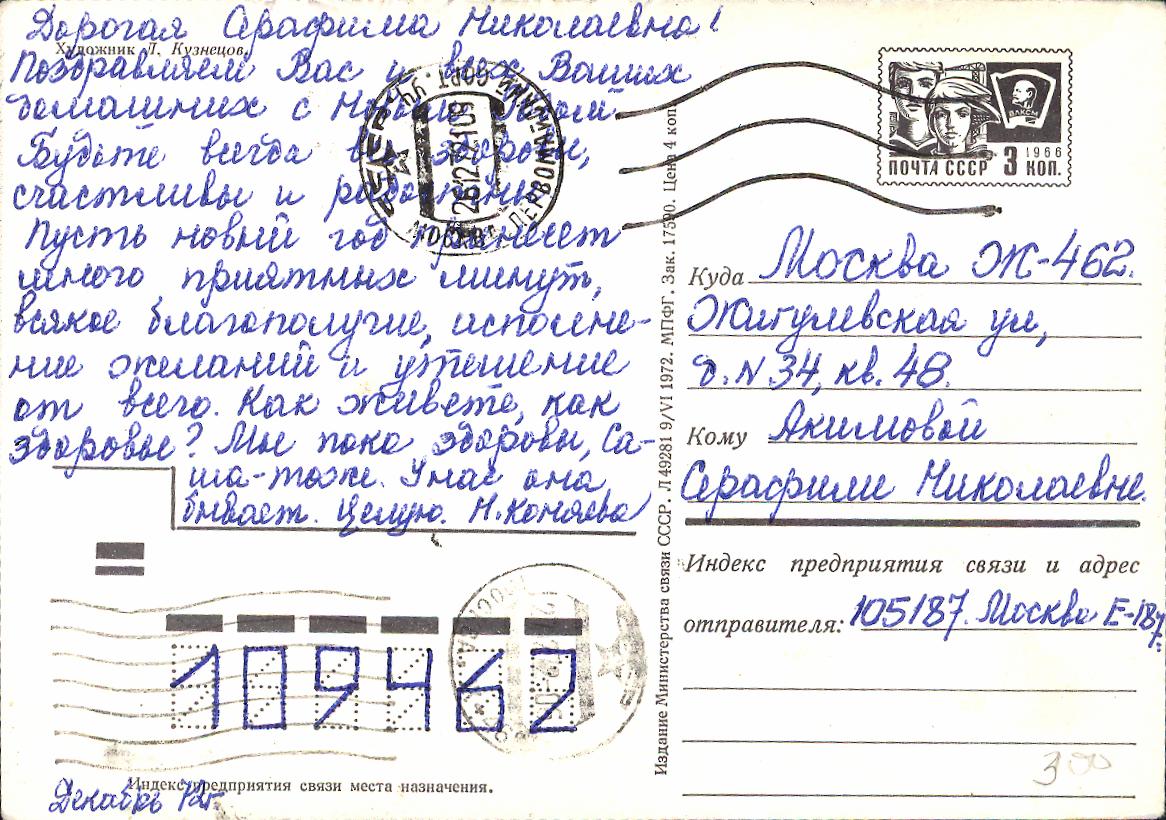 Дорогая Серафима Николаевна!
Художник Л. Кузнецов.
Поздравляем Вас и всех Ваших
домашних с Новым Годом.
Будьте всегда все здоровы,
счастливы и радостны.
Пусть новый год принесет
много приятных минут,
всякое благополучие, исполне-
ние желаний и утешение
от всего. Как живете, как
здоровье? Мы пока здоровы, Са-
ша-тоже. У нас она
бывает. Целую. Н. Коняева
Декабрь 72г.
109462
Индекс предприятия связи места назначения.
Издание Министерства связи СССР. Л 49281 9/VI 1972. МПФГ. Зак. 17590. Цена 4 коп.
МОСКВА ПЕРВОМАЙСКИЙ
261272 2109
ВЛКСМ
1966
ПОЧТА СССР 3 КОП.
Куда Москва Ж-462.
Жигулевская ул,
д. N 34, кв. 48.
Кому Акимовой
Серафиме Николаевне.
Индекс предприятия связи и адрес
отправителя: 105187. Москва Е-187.
300